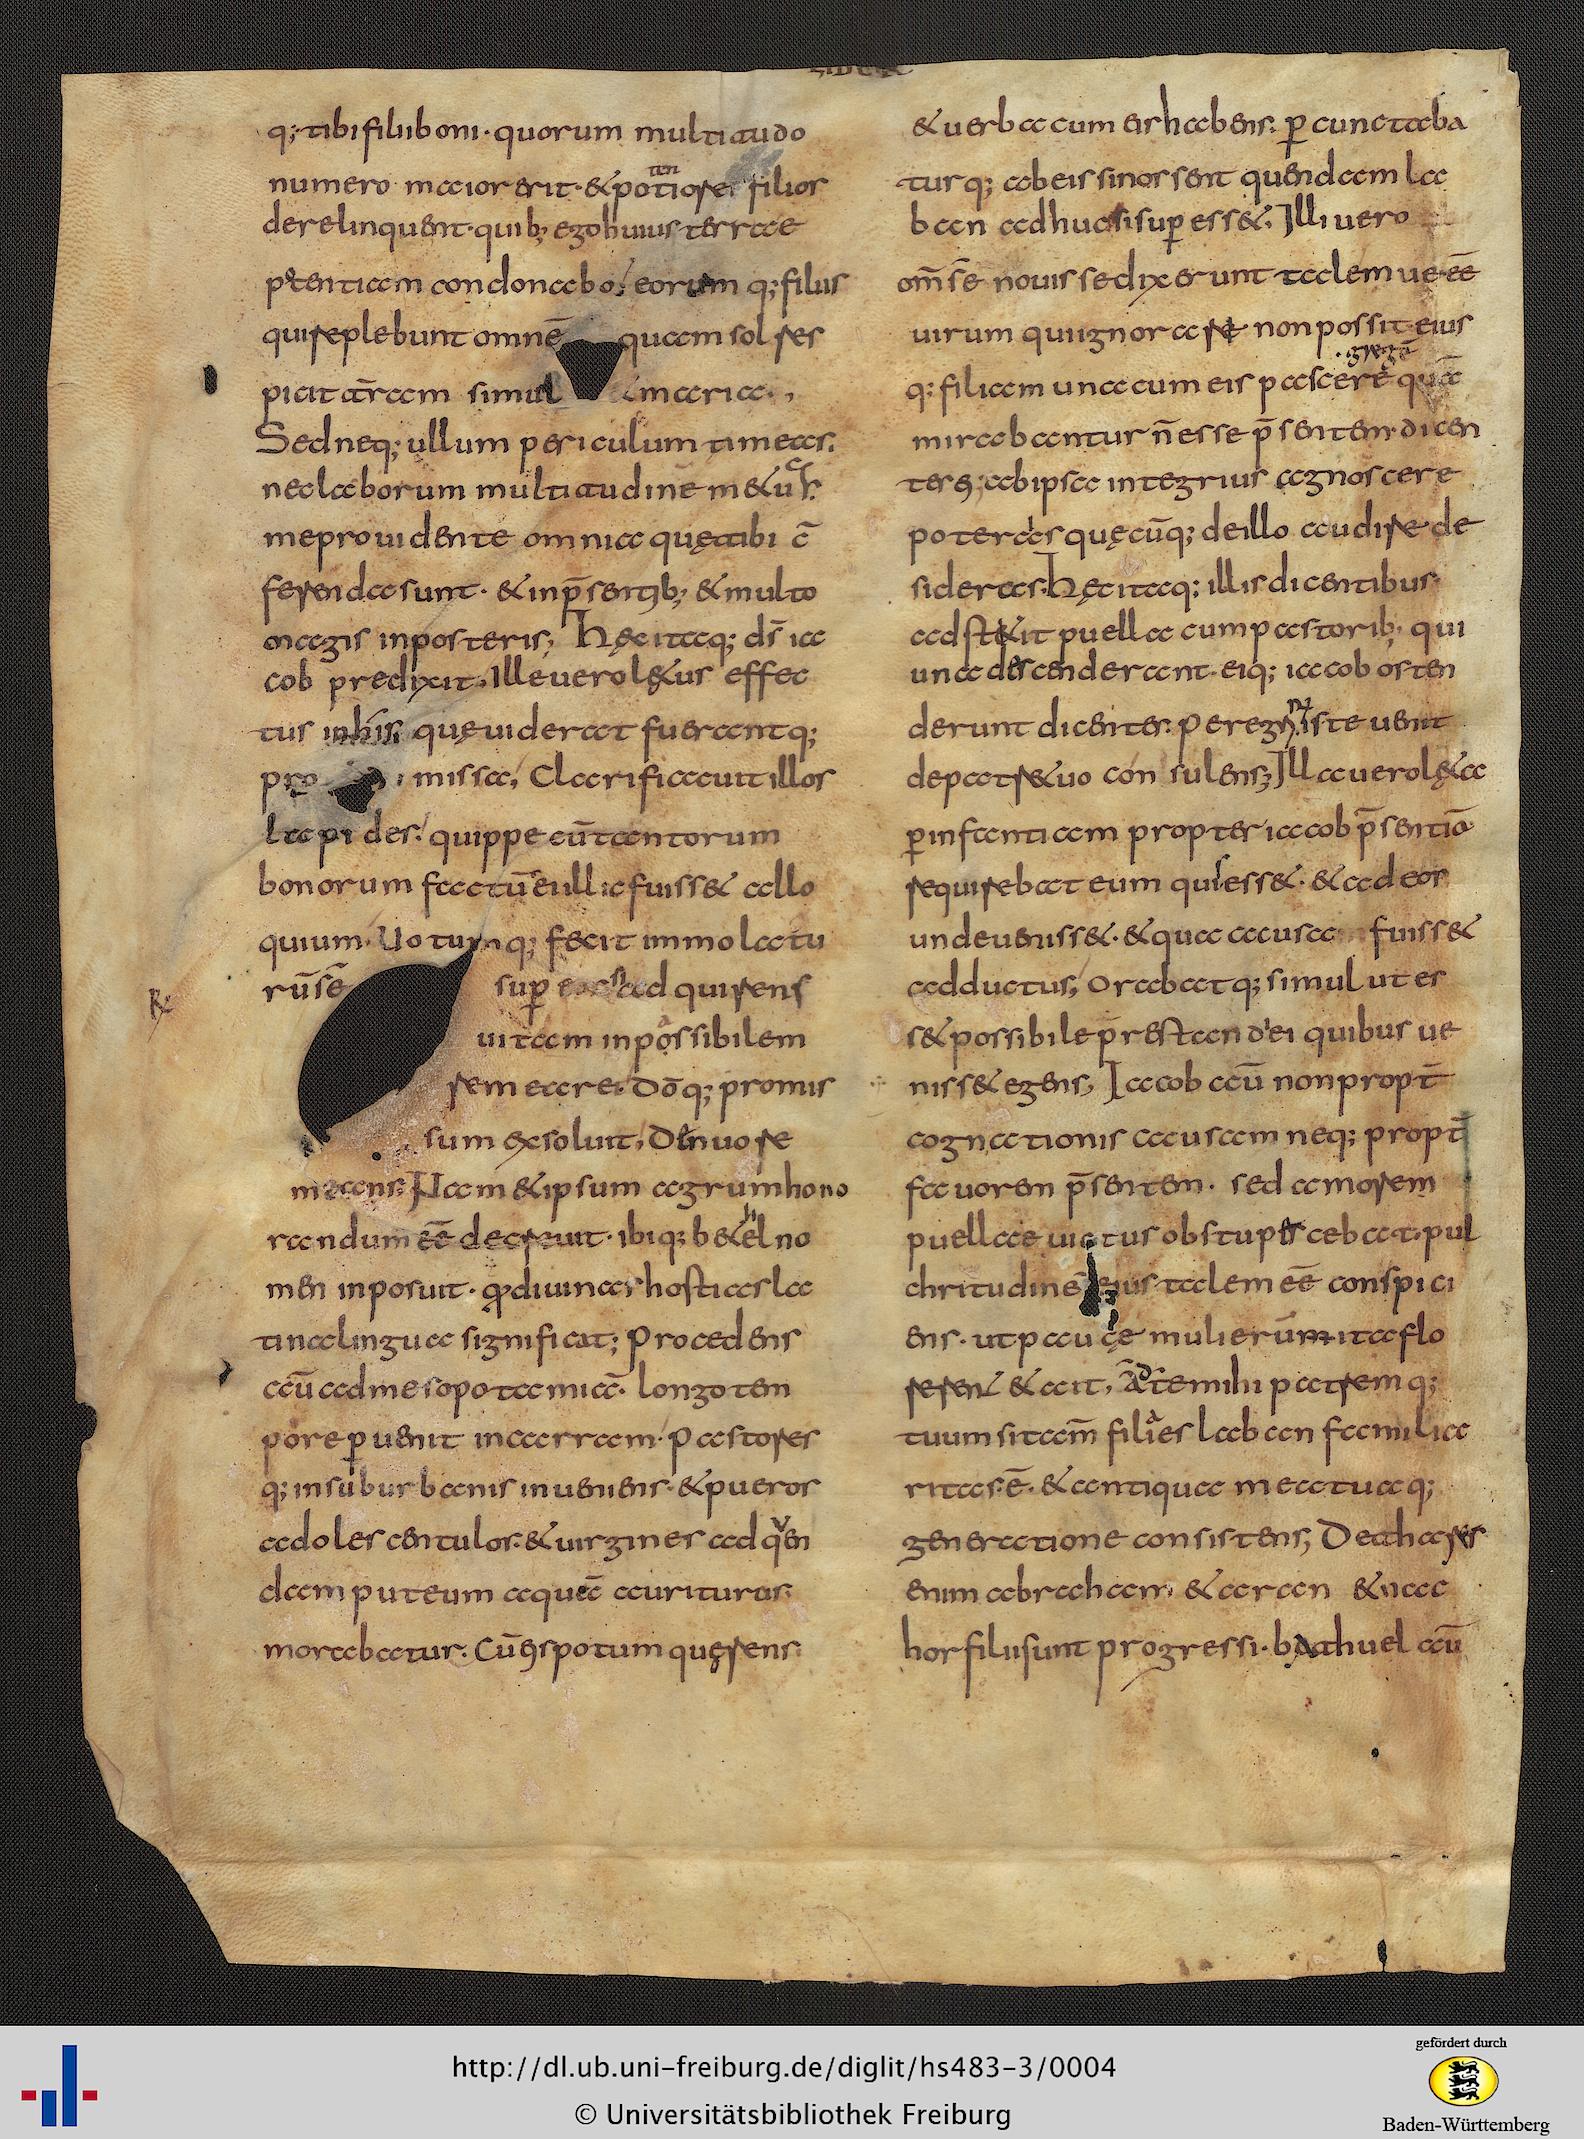 LIBER
q; tibi filii boni· quorum multitudo
numero maior erit· & potiores filios
ten
derelinquent· quib; ego huius terrae
potentiam condonabo, eorum q; filiis
qui replebunt omnē quam sol res
picit terram simul & maria,
Sed neq; ullum periculum timeas·
nec laborum multitudinē m&uas·
me prouidente omnia quę tibi c̄
ferenda sunt· & in p̄sentib; & multo
magis in posteris; Hęc itaq; ds̄ ia
cob predixit· Ille uero lę&us effec
tus in his, quę uiderat fuerantq;
pro missa, Clarificauit illos
lapides· quippe cū tantorum
bonorum factū ei illic fuiss& allo
quium· Uotumq; fecit immolatu
rū sē sup eas ad quirens
uitam inpossibilem
rem eare· dō q; promis
sum exsoluit, Denuo re
means· Nam & ipsum agrum hono
randum eē decreuit· ibiq; b&hel no
men inposuit· qđ diuinas hostias la
tina lingua significat; Procedens
aū ad mesopotamiā· longo tem
pore puenit in carram· Pastores
q; in suburbanis inueniens· & pueros
adolescentulos· & uirgines ad quen
dam puteum aquā aurituras·
morabatur· Cū q;s potum quęrens·
& uerba cum eis habens· p cuncta ba
tur q; ab eis si nossent quendam la
ban adhuc si sup ess&· Illi uero
om̄ sē nouisse dixerunt talem ue eē
uirum qui ignorare non possit· eius
·gregē
q; filiam una cum eis pascere quā
mirabantur n̄ esse p̄sentem· dicen
tes q; ab ipsa integrius agnoscere
poteras quęcūq; de illo audire de
sideras· Hęc itaq; illis dicentibus·
adst&it puella cum pastorib; qui
una descenderant· eiq; iacob osten
derunt dicentes· Peregrin; iste uenit
de patre tuo consulens; Illa uero lę&a
p infantiam propter iacob p̄sentiā
requirebat eum quis ess&· & ad eos
unde ueniss&· & qua causa fuiss&
adductus, Orabatq; simul ut es
s& possibile prestandi ei quibus ue
niss& egens, Iacob aū non propt̄
cognationis causam neq; propt̄
fauorem p̄sentem· sed amorem
puellae uictus obstupescebat· pul
chritudinē eius talem eē conspici
ens· ut pauce mulierum ita flo
rerent & ait, Ad te mihi patrem q;
tuum si tam̄ filia es laban familia
ritas ē· & antiqua mea tuaq;
generatione consistens, De thares
enim abraham & aran & nac
hor filii sunt progressi· bathuel aū
http://dl.ub.uni-freiburg.de/diglit/hs483-3/0004
© Universitätsbibliothek Freiburg
gefördert durch
Baden-Württemberg